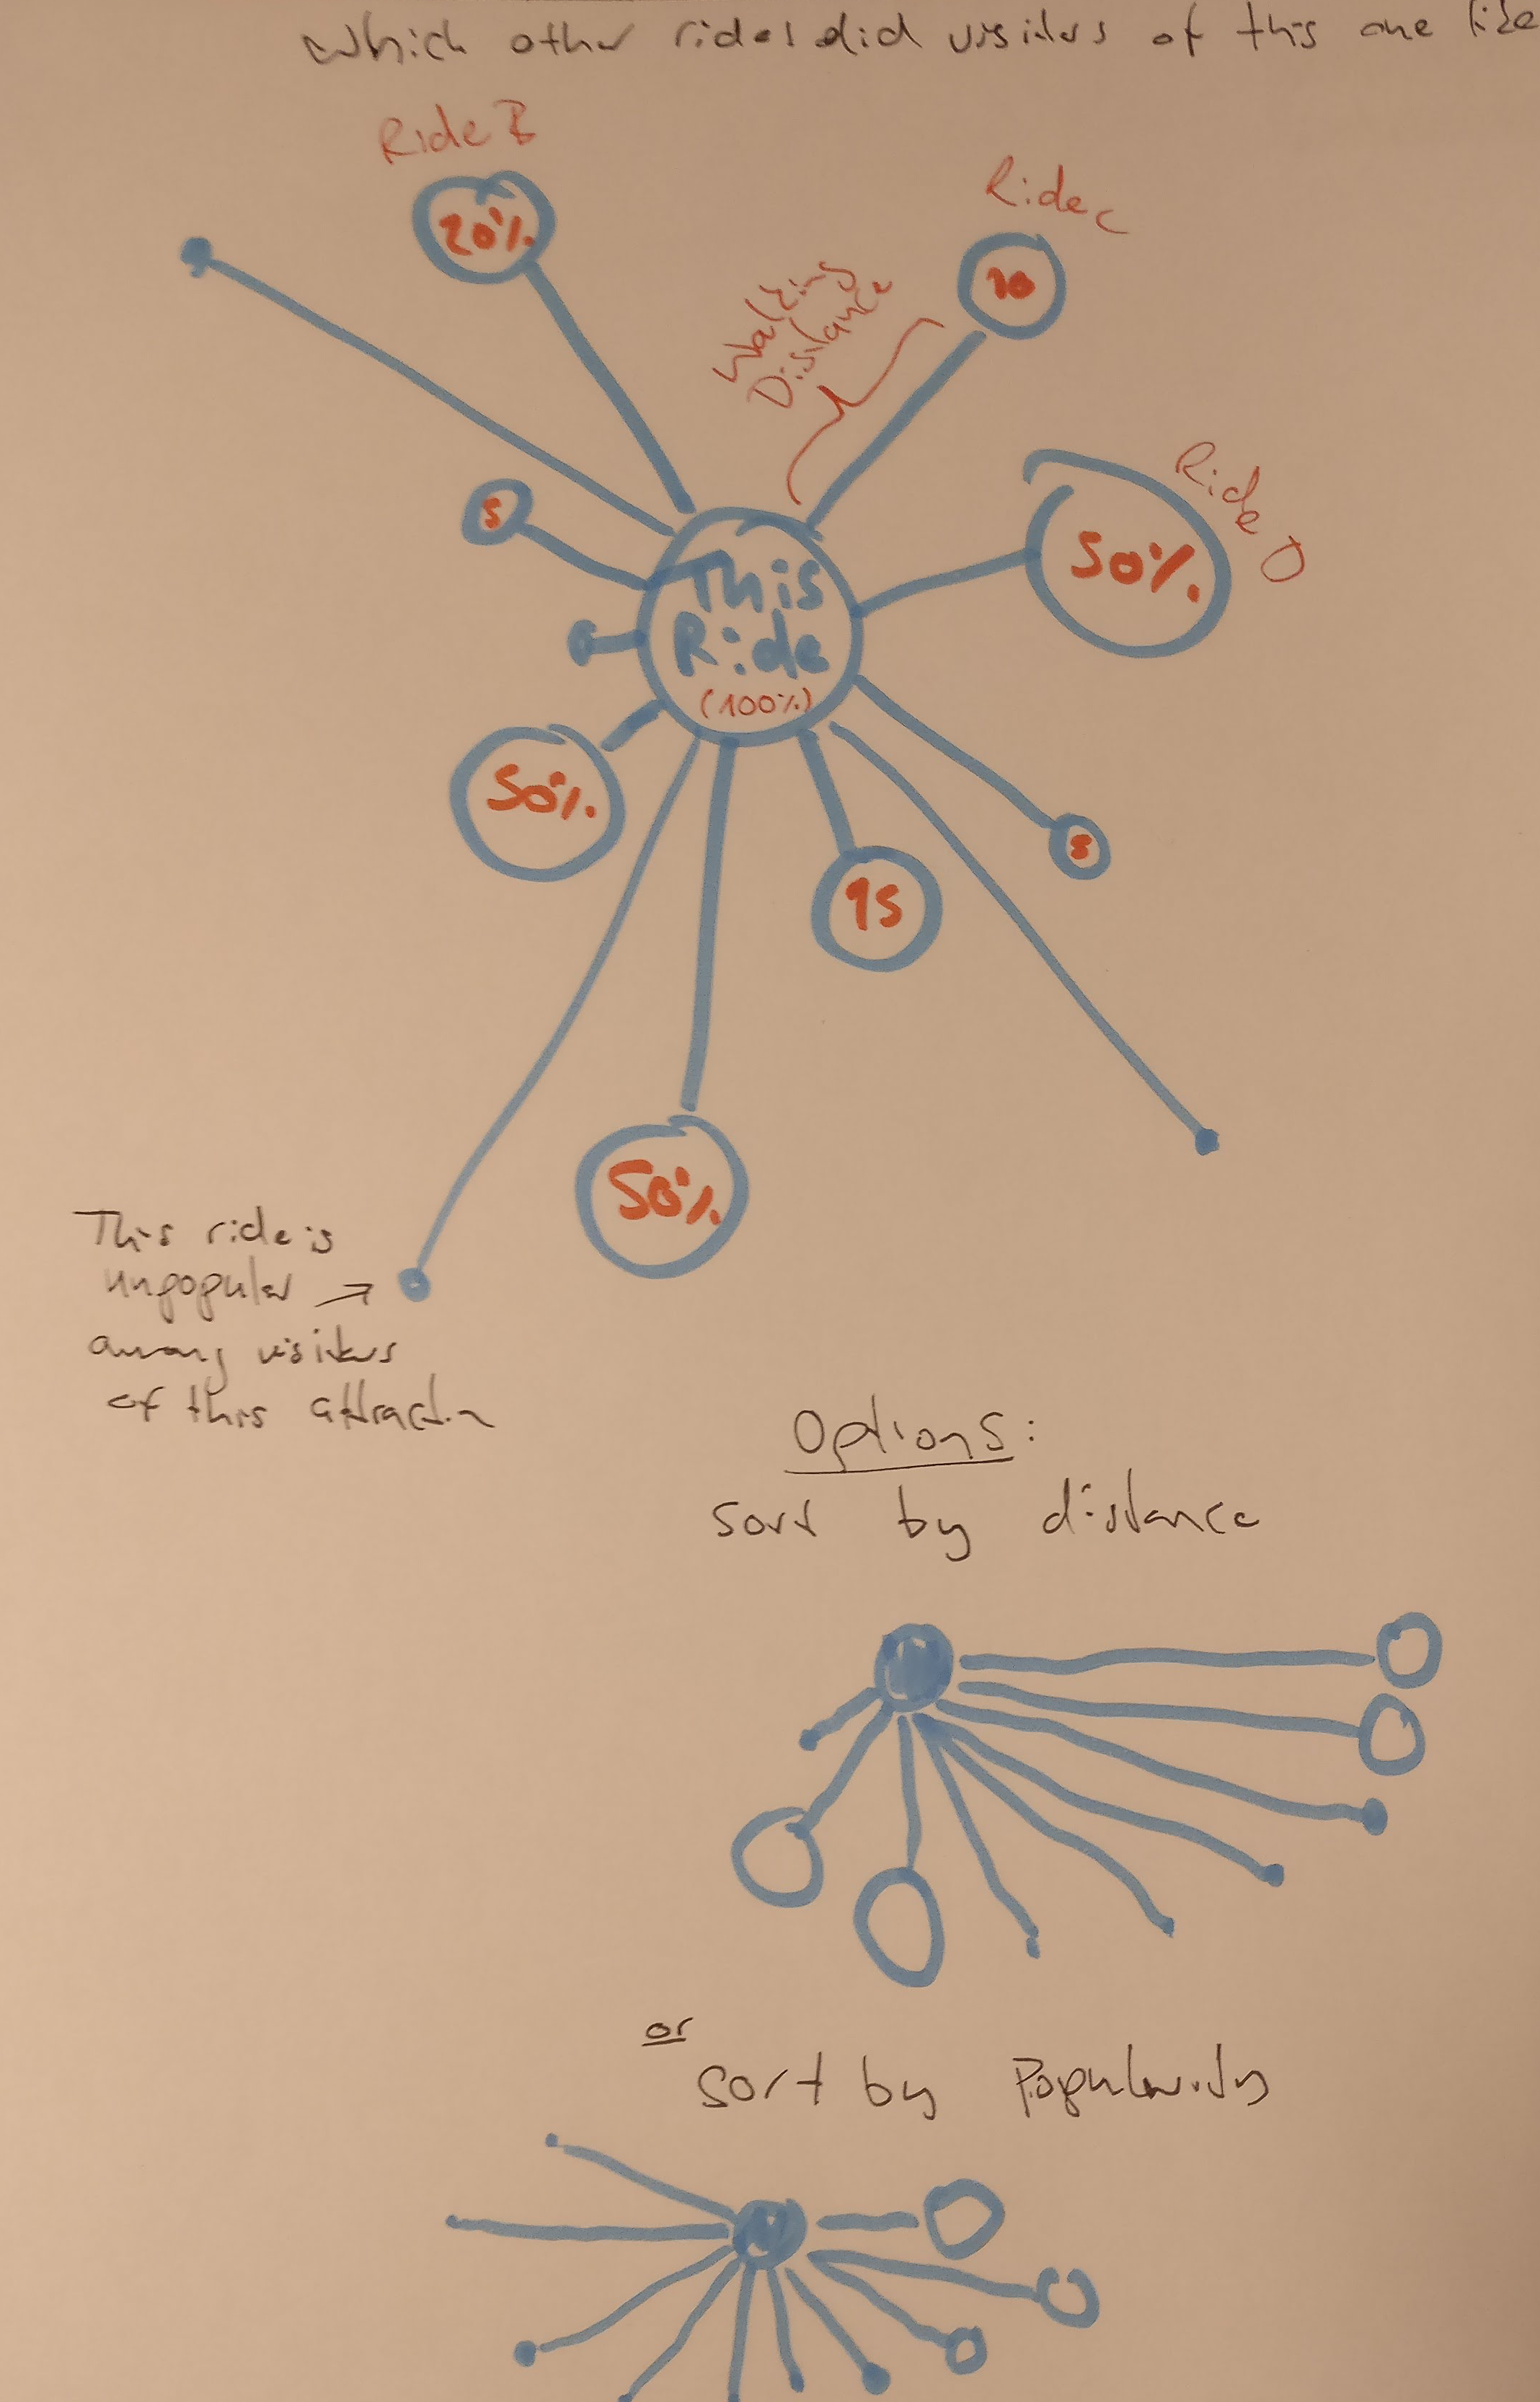 Which other rides did visitors of this one like
Ride B
20%
Ride C
10
Walking
Distance
Ride D
50%
5
This
Ride
(100%)
50%
5
15
50%
This ride is
unpopular →
among visitors
of this attraction
Options:
sort by distance
or
sort by Popularity